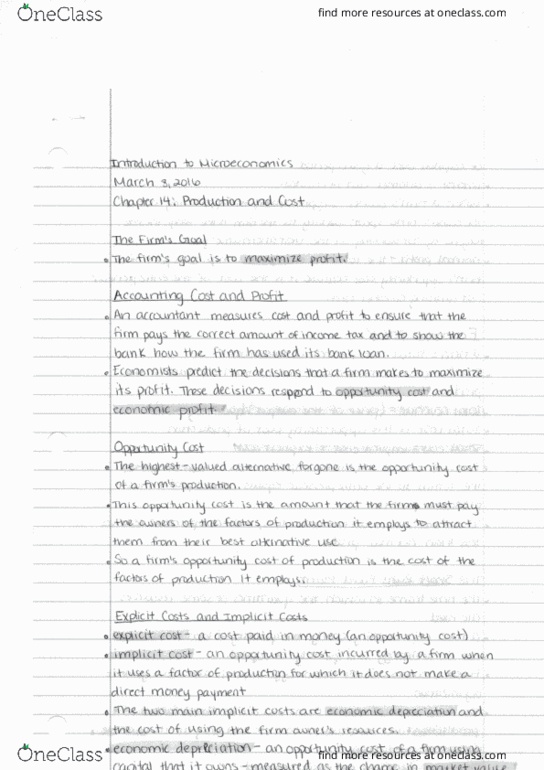 OneClass
find more resources at oneclass.com
Introduction to Microeconomics
March 3, 2016
Chapter 14: Production and Cost
The Firm's Goal
• The firm's goal is to maximize profit.
Accounting Cost and Profit
• An accountant measures cost and profit to ensure that the
firm pays the correct amount of income tax and to show the
bank how the firm has used its bank loan.
• Economists predict the decisions that a firm makes to maximize
its profit. These decisions respond to opportunity cost and
economic profit.
Opportunity Cost
• The highest-valued alternative forgone is the opportunity cost
of a firm's production.
• This opportunity cost is the amount that the firm must pay
the owners of the factors of production it employs to attract
them from their best alternative use.
• So a firm's opportunity cost of production is the cost of the
factors of production it employs.
Explicit Costs and Implicit Costs
• explicit cost - a cost paid in money (an opportunity cost)
• implicit cost - an opportunity cost incurred by a firm when
it uses a factor of production for which it does not make a
direct money payment
• The two main implicit costs are economic depreciation and
the cost of using the firm owner's resources.
• economic depreciation - an opportunity cost of a firm using
capital that it owns - measured as the change in market value
OneClass
find more resources at oneclass.com